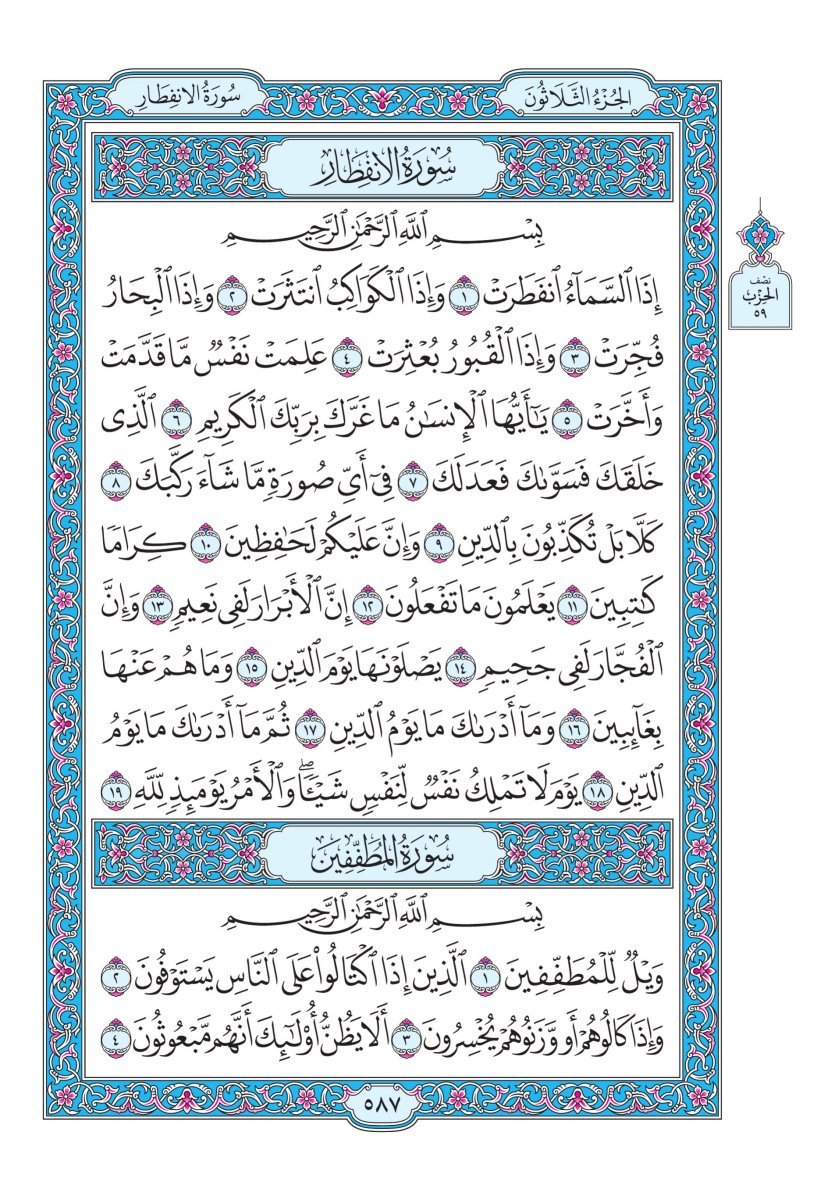 الجُزْءُ الثَّلَاثُونَ
سُورَةُ الانفِطَار
سُورَةُ الانفِطَارِ
بِسْمِ ٱللَّهِ ٱلرَّحْمَٰنِ ٱلرَّحِيمِ
إِذَا ٱلسَّمَآءُ ٱنفَطَرَتْ ١ وَإِذَا ٱلْكَوَاكِبُ ٱنتَثَرَتْ ٢ وَإِذَا ٱلْبِحَارُ
فُجِّرَتْ ٣ وَإِذَا ٱلْقُبُورُ بُعْثِرَتْ ٤ عَلِمَتْ نَفْسٌ مَّا قَدَّمَتْ
وَأَخَّرَتْ ٥ يَٰٓأَيُّهَا ٱلْإِنسَٰنُ مَا غَرَّكَ بِرَبِّكَ ٱلْكَرِيمِ ٦ ٱلَّذِى
خَلَقَكَ فَسَوَّىٰكَ فَعَدَلَكَ ٧ فِىٓ أَىِّ صُورَةٍ مَّا شَآءَ رَكَّبَكَ ٨
كَلَّا بَلْ تُكَذِّبُونَ بِٱلدِّينِ ٩ وَإِنَّ عَلَيْكُمْ لَحَٰفِظِينَ ١٠ كِرَامًا
كَٰتِبِينَ ١١ يَعْلَمُونَ مَا تَفْعَلُونَ ١٢ إِنَّ ٱلْأَبْرَارَ لَفِى نَعِيمٍ ١٣ وَإِنَّ
ٱلْفُجَّارَ لَفِى جَحِيمٍ ١٤ يَصْلَوْنَهَا يَوْمَ ٱلدِّينِ ١٥ وَمَا هُمْ عَنْهَا
بِغَآئِبِينَ ١٦ وَمَآ أَدْرَىٰكَ مَا يَوْمُ ٱلدِّينِ ١٧ ثُمَّ مَآ أَدْرَىٰكَ مَا يَوْمُ
ٱلدِّينِ ١٨ يَوْمَ لَا تَمْلِكُ نَفْسٌ لِّنَفْسٍ شَيْـًٔا ۖ وَٱلْأَمْرُ يَوْمَئِذٍ لِّلَّهِ ١٩
سُورَةُ المُطَفِّفِينَ
بِسْمِ ٱللَّهِ ٱلرَّحْمَٰنِ ٱلرَّحِيمِ
وَيْلٌ لِّلْمُطَفِّفِينَ ١ ٱلَّذِينَ إِذَا ٱكْتَالُوا۟ عَلَى ٱلنَّاسِ يَسْتَوْفُونَ ٢
وَإِذَا كَالُوهُمْ أَو وَّزَنُوهُمْ يُخْسِرُونَ ٣ أَلَا يَظُنُّ أُو۟لَٰٓئِكَ أَنَّهُم مَّبْعُوثُونَ ٤
٥٨٧
نصف
الحِزْب
٥٩